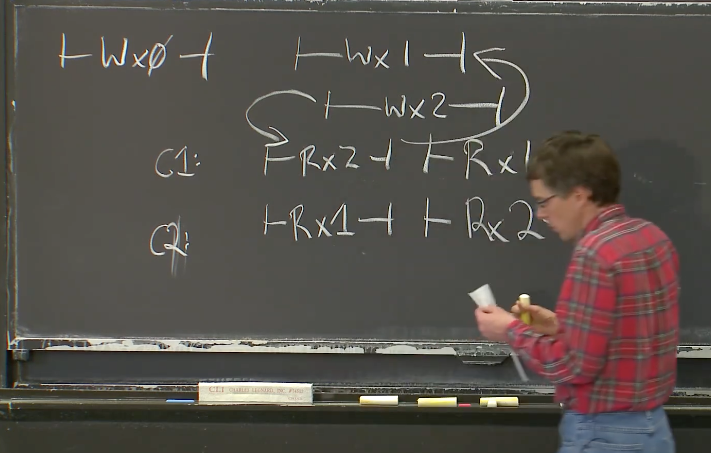 |-Wx0-| |-Wx1-|
|-Wx2-|
C1: |-Rx2-| |-Rx1
C2: |-Rx1-| |-Rx2